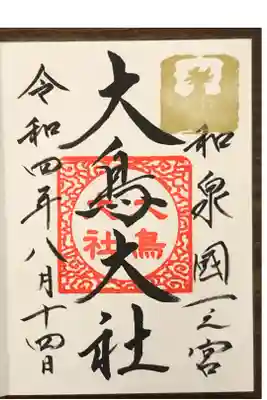 和泉國一之宮
大鳥大社
大鳥大社
令和四年八月十四日